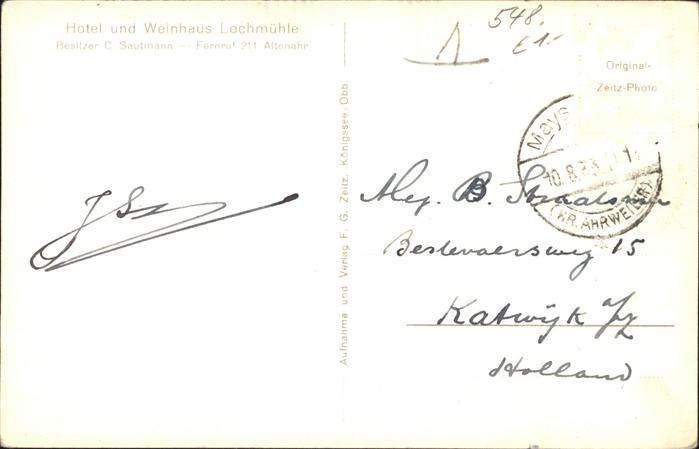 Hotel und Weinhaus Lochmühle
Besitzer C. Sautmann — Fernruf 211 Altenahr
548.
£1.-
1
Original-
Zeitz-Photo
Mays
10.8.33
(KR. AHRWEILER)
Aufnahme und Verlag F. G. Zeitz, Königssee, Obb.
Mej. B.
15
Katwijk a/z
Holland